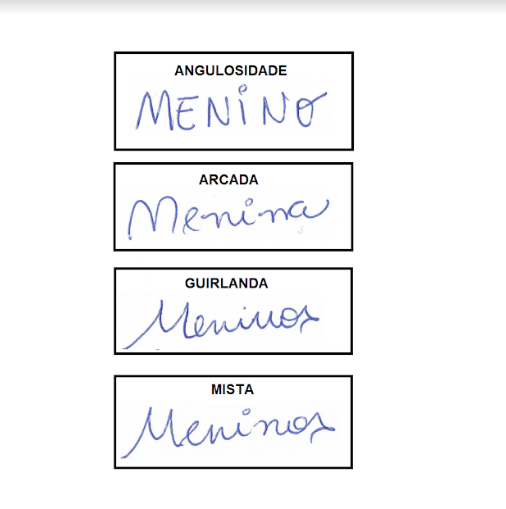 ANGULOSIDADE
MENINO
ARCADA
Menina
GUIRLANDA
Meninos
MISTA
Meninos